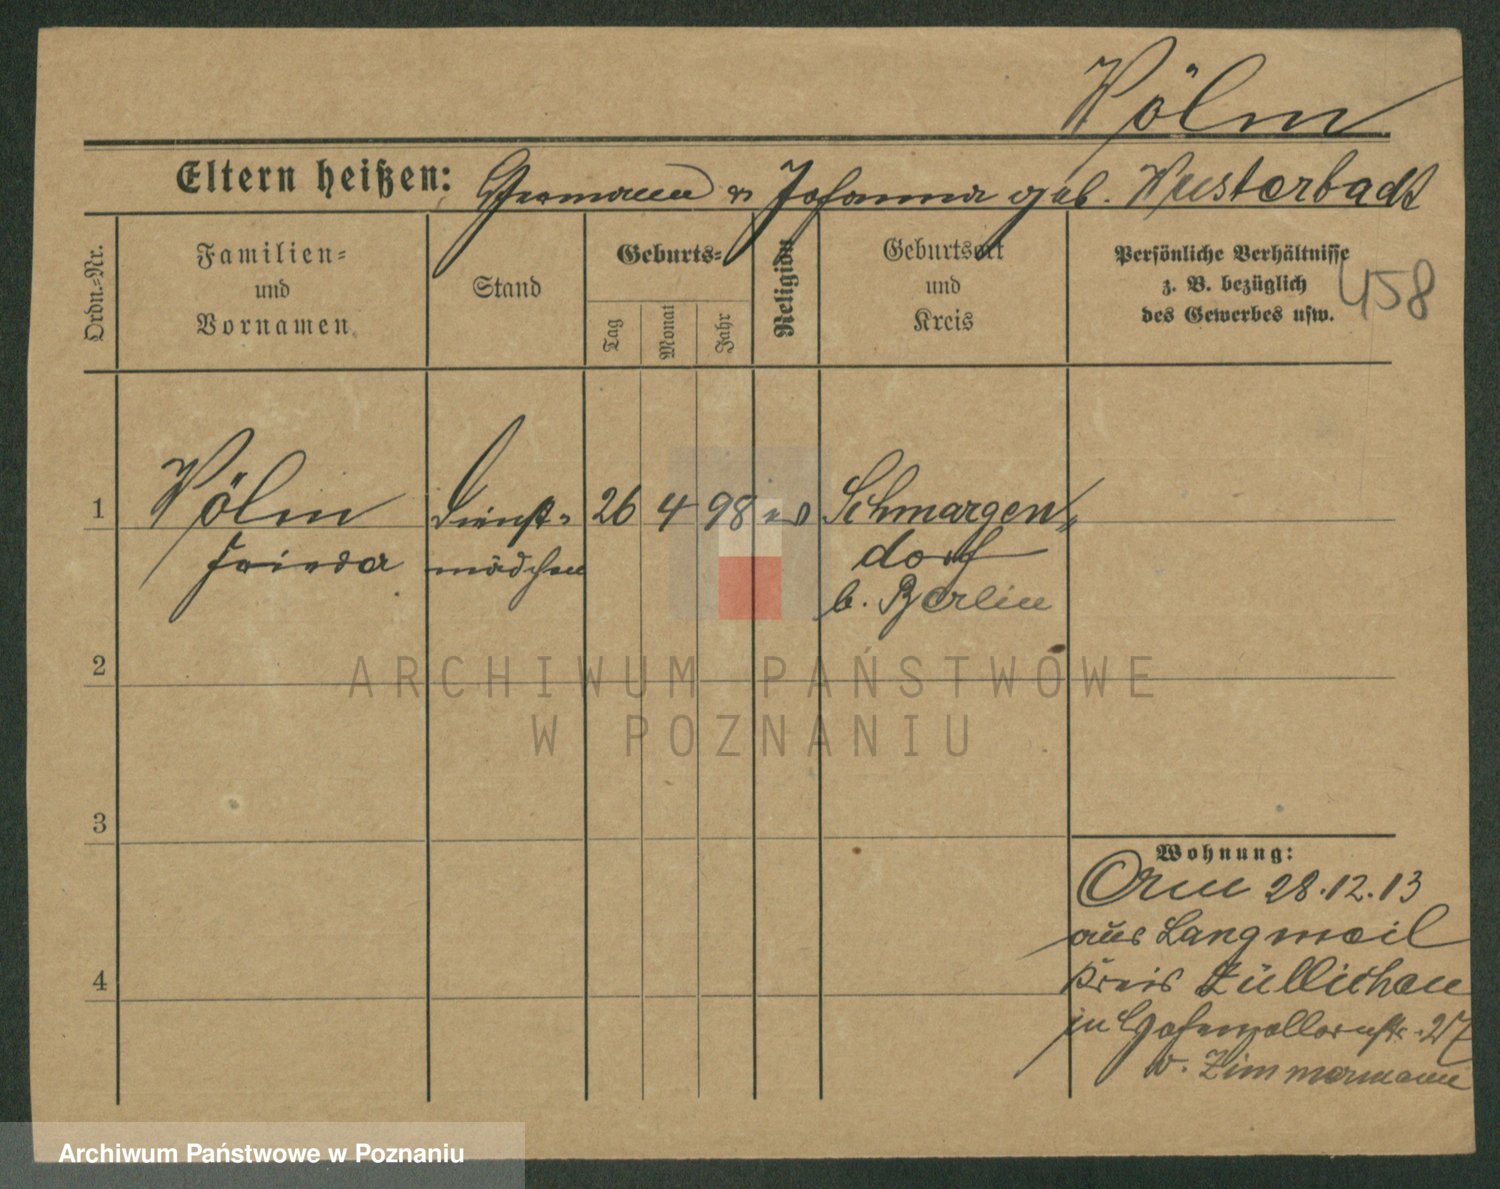 Wölm
Eltern heißen: Hermann u Johanna geb. Wusterbadt
Ordn.-Nr.
Familien-
und
Vornamen
Stand
Geburts-
Tag
Monat
Jahr
Religion
Geburtsort
und
Kreis
Persönliche Verhältnisse
z. B. bezüglich
des Gewerbes usw.
458
1 Wölm Dienst- 26 4 98 ev Schmargen-
Frieda mädchen dorf
b. Berlin
2
ARCHIWUM PAŃSTWOWE
W POZNANIU
3
Wohnung:
28.12.13
aus Langmeil
4
Kreis Züllichau
in Hohenzollernstr. 27
v. Zimmermann
Archiwum Państwowe w Poznaniu